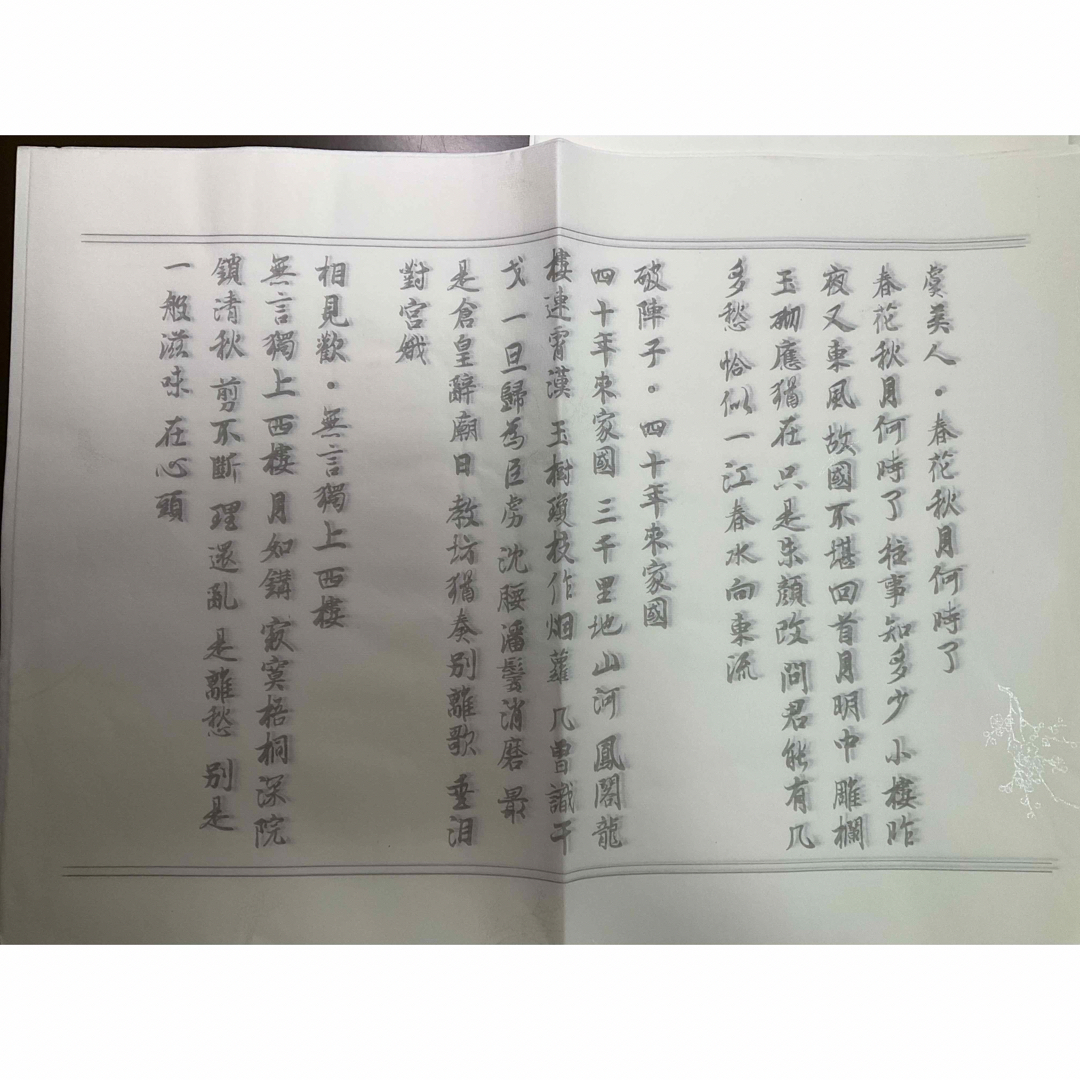 虞美人·春花秋月何時了
春花秋月何時了 往事知多少 小樓昨
夜又東風 故國不堪回首月明中 雕欄
玉砌應猶在 只是朱顏改 問君能有几
多愁 恰似一江春水向東流
破陣子·四十年來家國
四十年來家國 三千里地山河 鳳閣龍
樓連霄漢 玉樹瓊枝作烟蘿 几曾識干
戈 一旦歸為臣虜 沈腰潘鬢消磨 最
是倉皇辭廟日 教坊猶奏別離歌 垂淚
對宮娥
相見歡·無言獨上西樓
無言獨上西樓 月如鉤 寂寞梧桐深院
鎖清秋 剪不斷 理還亂 是離愁 別是
一般滋味 在心頭